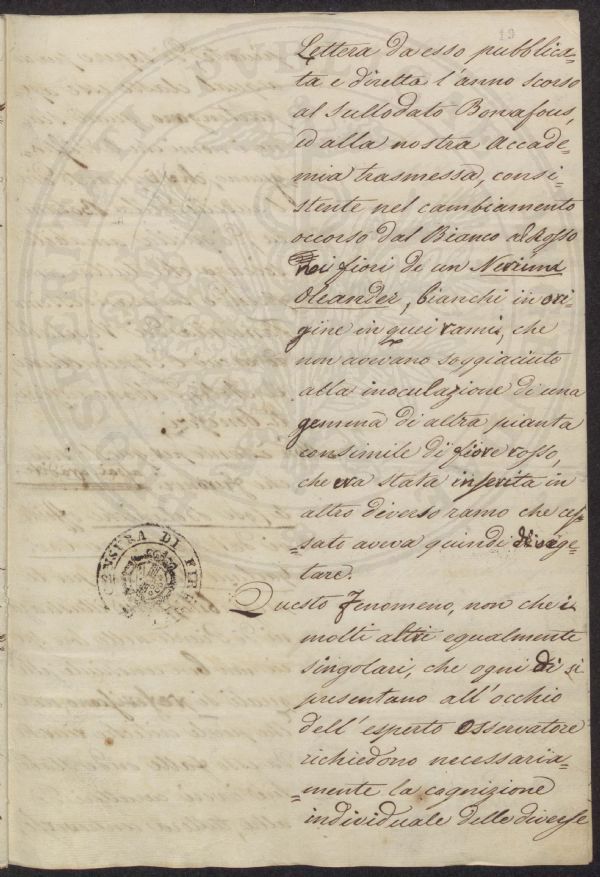 19
Lettera da esso pubblica=
ta e diretta l'anno scorso
al sullodato Bonafous,
ed alla nostra Accade=
mia trasmessa, consi=
stente nel cambiamento
occorso dal Bianco al Rosso
nei fiori di un Nerium
Oleander, bianchi in ori=
gine in quei rami, che
non avevano soggiaciuto
alla inoculazione di una
gemma di altra pianta
consimile di fiore rosso,
che era stata inserita in
altro diverso ramo che ces=
=sato aveva quindi di vege=
tare.
Questo Fenomeno, non che i
molti altri egualmente
singolari, che ogni dì si
presentano all'occhio
dell'esperto Osservatore
richiedono necessaria=
=mente la cognizione
individuale delle diverse
CENSURA DI FIRENZE